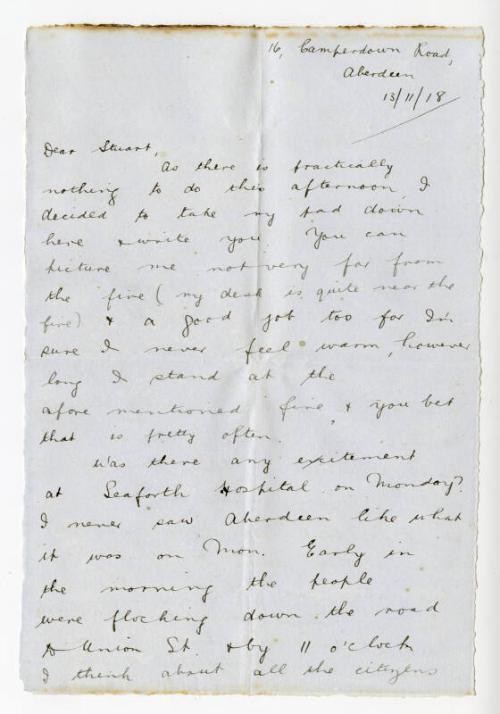 16, Camperdown Road,
Aberdeen
13/11/18
Dear Stuart,
As there is practically
nothing to do this afternoon I
decided to take my pad down
here & write you. You can
picture me not very far from
the fire (my desk is quite near the
fire) & a good job too for I'm
sure I never feel warm, however
long I stand at the
afore mentioned fire, & you bet
that is pretty often.
Was there any excitement
at Seaforth Hospital on Monday?
I never saw Aberdeen like what
it was on Mon. Early in
the morning the people
were flocking down the road
to Union St. & by 11 o'clock
I think about all the citizens